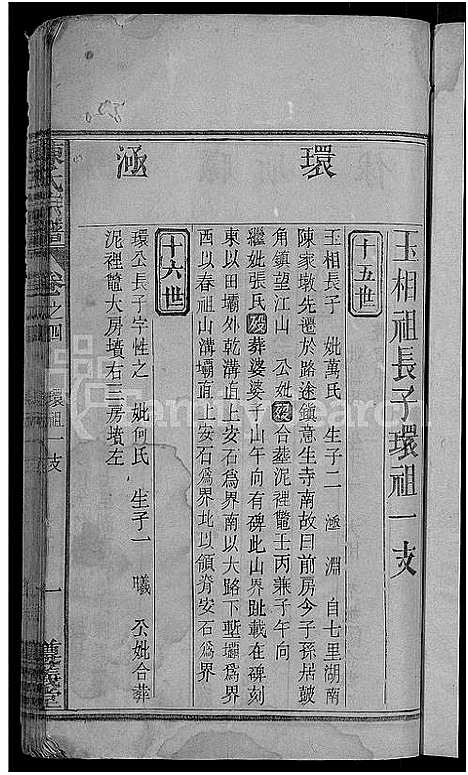 玉相祖長子環祖一支
環
十五世
玉相長子　妣萬氏　生子二　涵　淵　自七里湖南
陳家墩先遷於路途鎮意生寺南故曰前房今子孫居皷
角鎮望江山　公妣歿合葬泥裡鼈壬丙兼子午向
繼妣張氏歿葬婆婆子山午向有碑此山界趾載在碑刻
東以田壩外乾溝直上安石爲界南以大路下塹壩爲界
西以春祖山溝壩直上安石爲界北以領脊安石爲界
涵
十六世
環公長子字性之　妣何氏　生子一　曦　公妣合葬
泥裡鼈大房墳右三房墳左
陳氏宗譜
卷之四
環祖一支
一
義門堂
FamilySearch